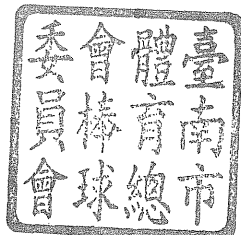 臺南市
體育總
會棒球
委員會